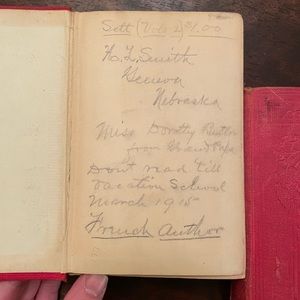 Sett (Vols 2) $1.00
H. L. Smith
Geneva
Nebraska
Miss Dorothy
from Grand Papa
Don't read till
vacation School
March 1915
French Author